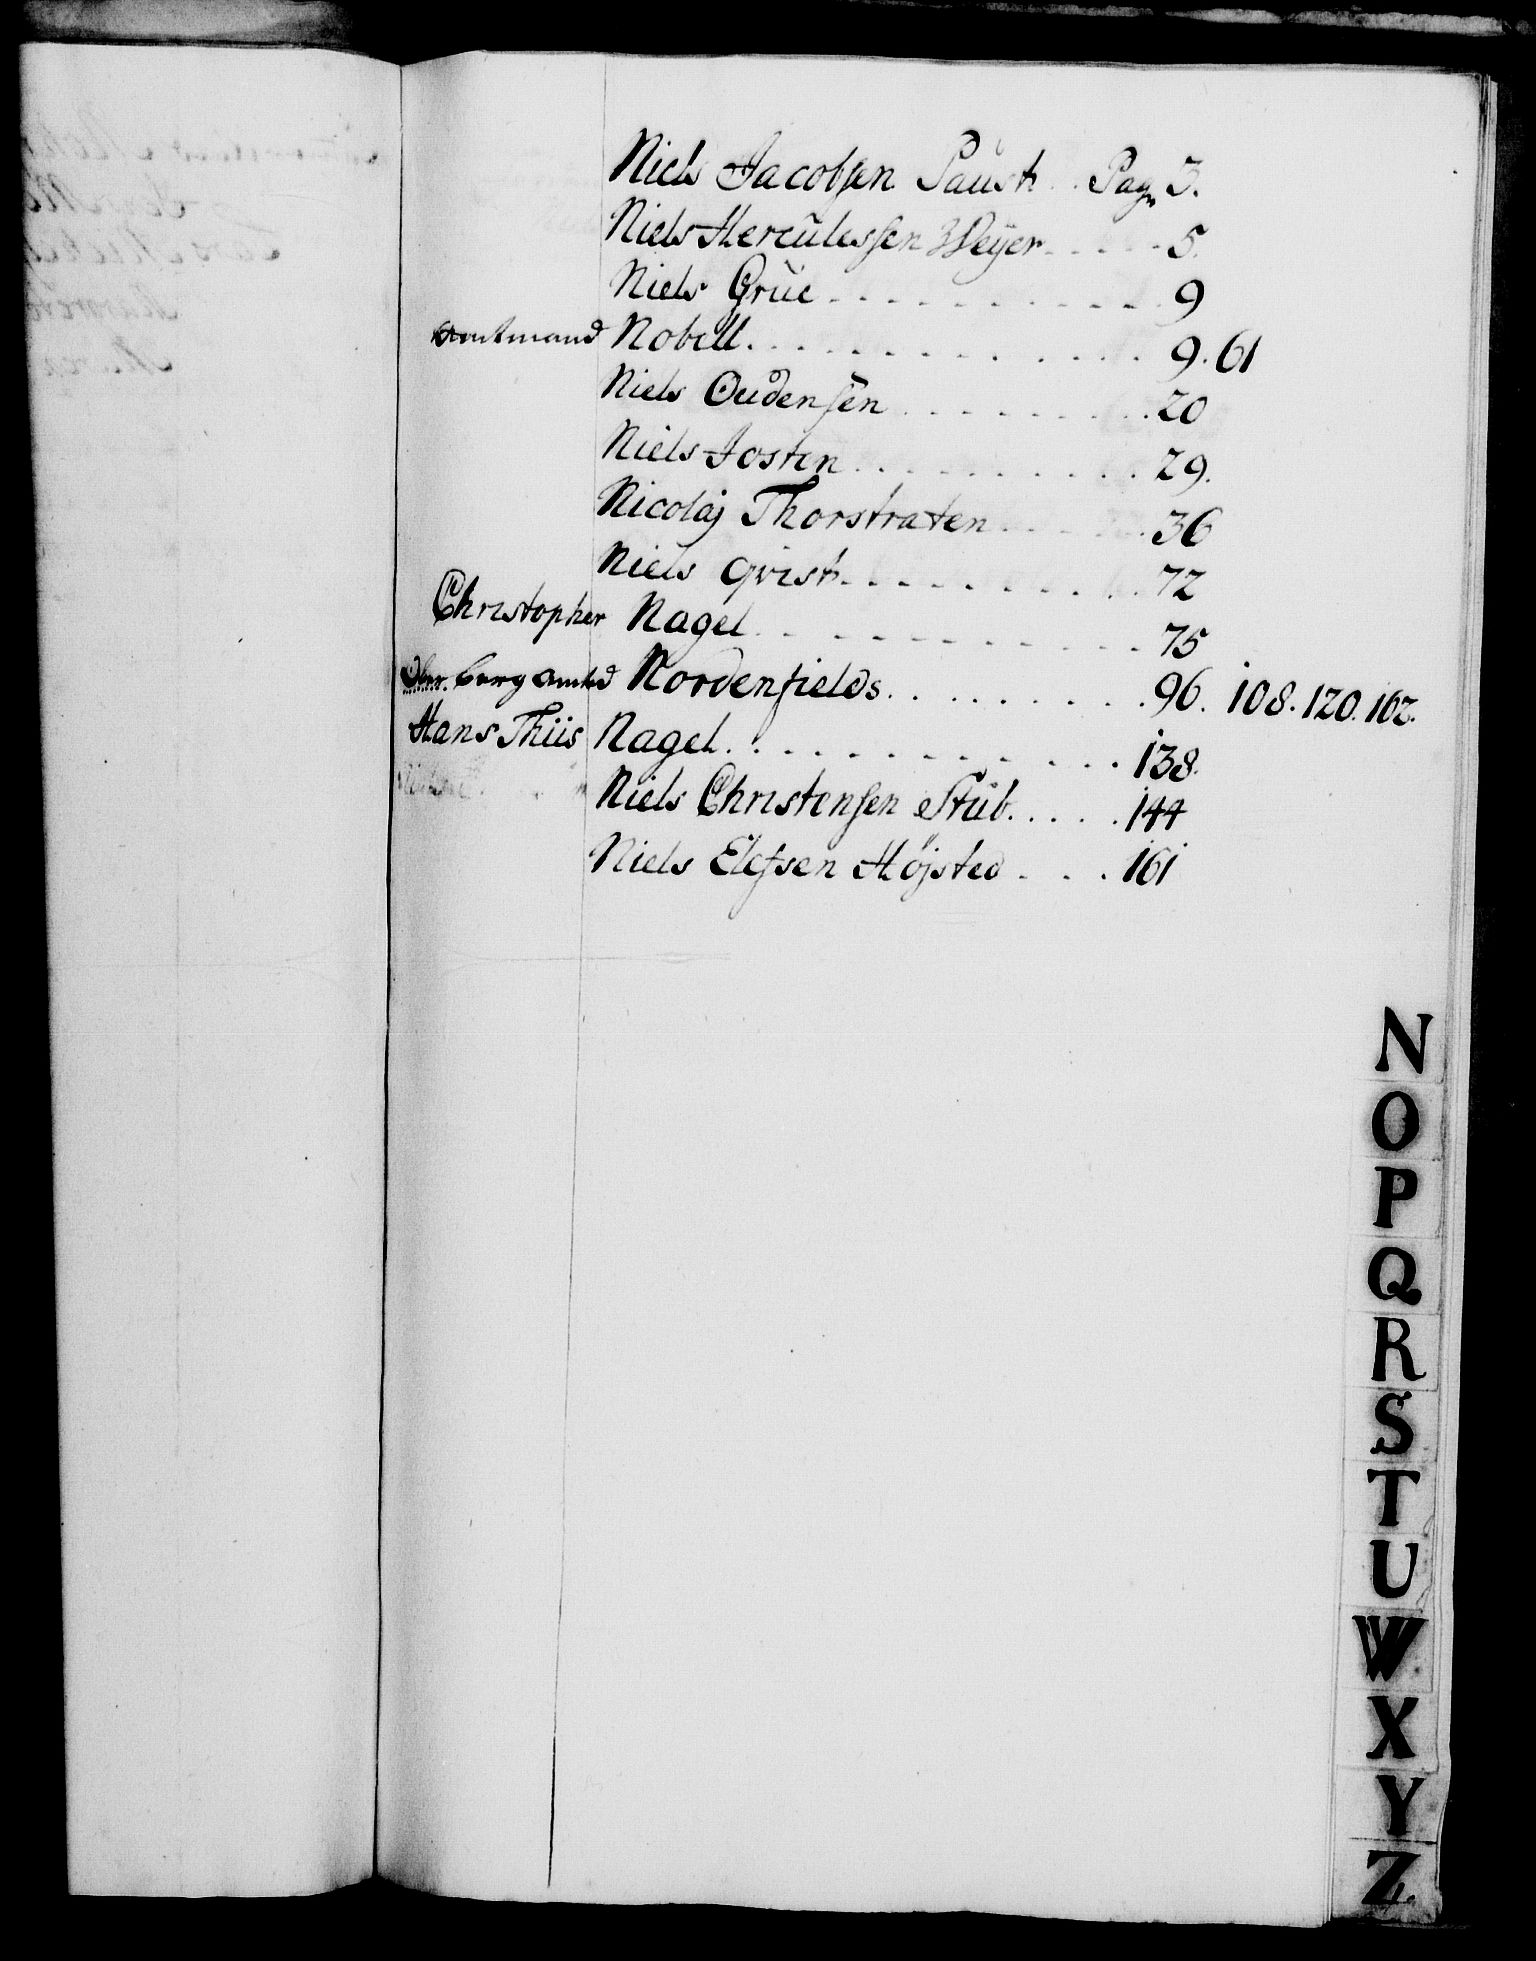 Niels Jacobsen Paust . . Pag. 3.
Niels Herculessen Weyer . . . . . 5.
Niels Grue . . . . . . . . . . . 9
Amtmand Nobell. . . . . . . . . . . . 9. 61
Niels Oudensen . . . . . . . . 20
Niels Josten . . . . . . . . . . 29.
Nicolaj Thorstraten . . . . . 36
Niels Qvist . . . . . . . . . . 72
Christopher Nagel . . . . . . . . . . . 75
Ober. berg Amted Nordenfields . . . . . . . . . 96. 108. 120. 162.
Hans Thiis Nagel . . . . . . . . . . . . 138.
Niels Christensen Stub. . . . . 144
Niels Elefsen Højsted . . . . 161
N
O
P
Q
R
S
T
U
W
X
Y
Z